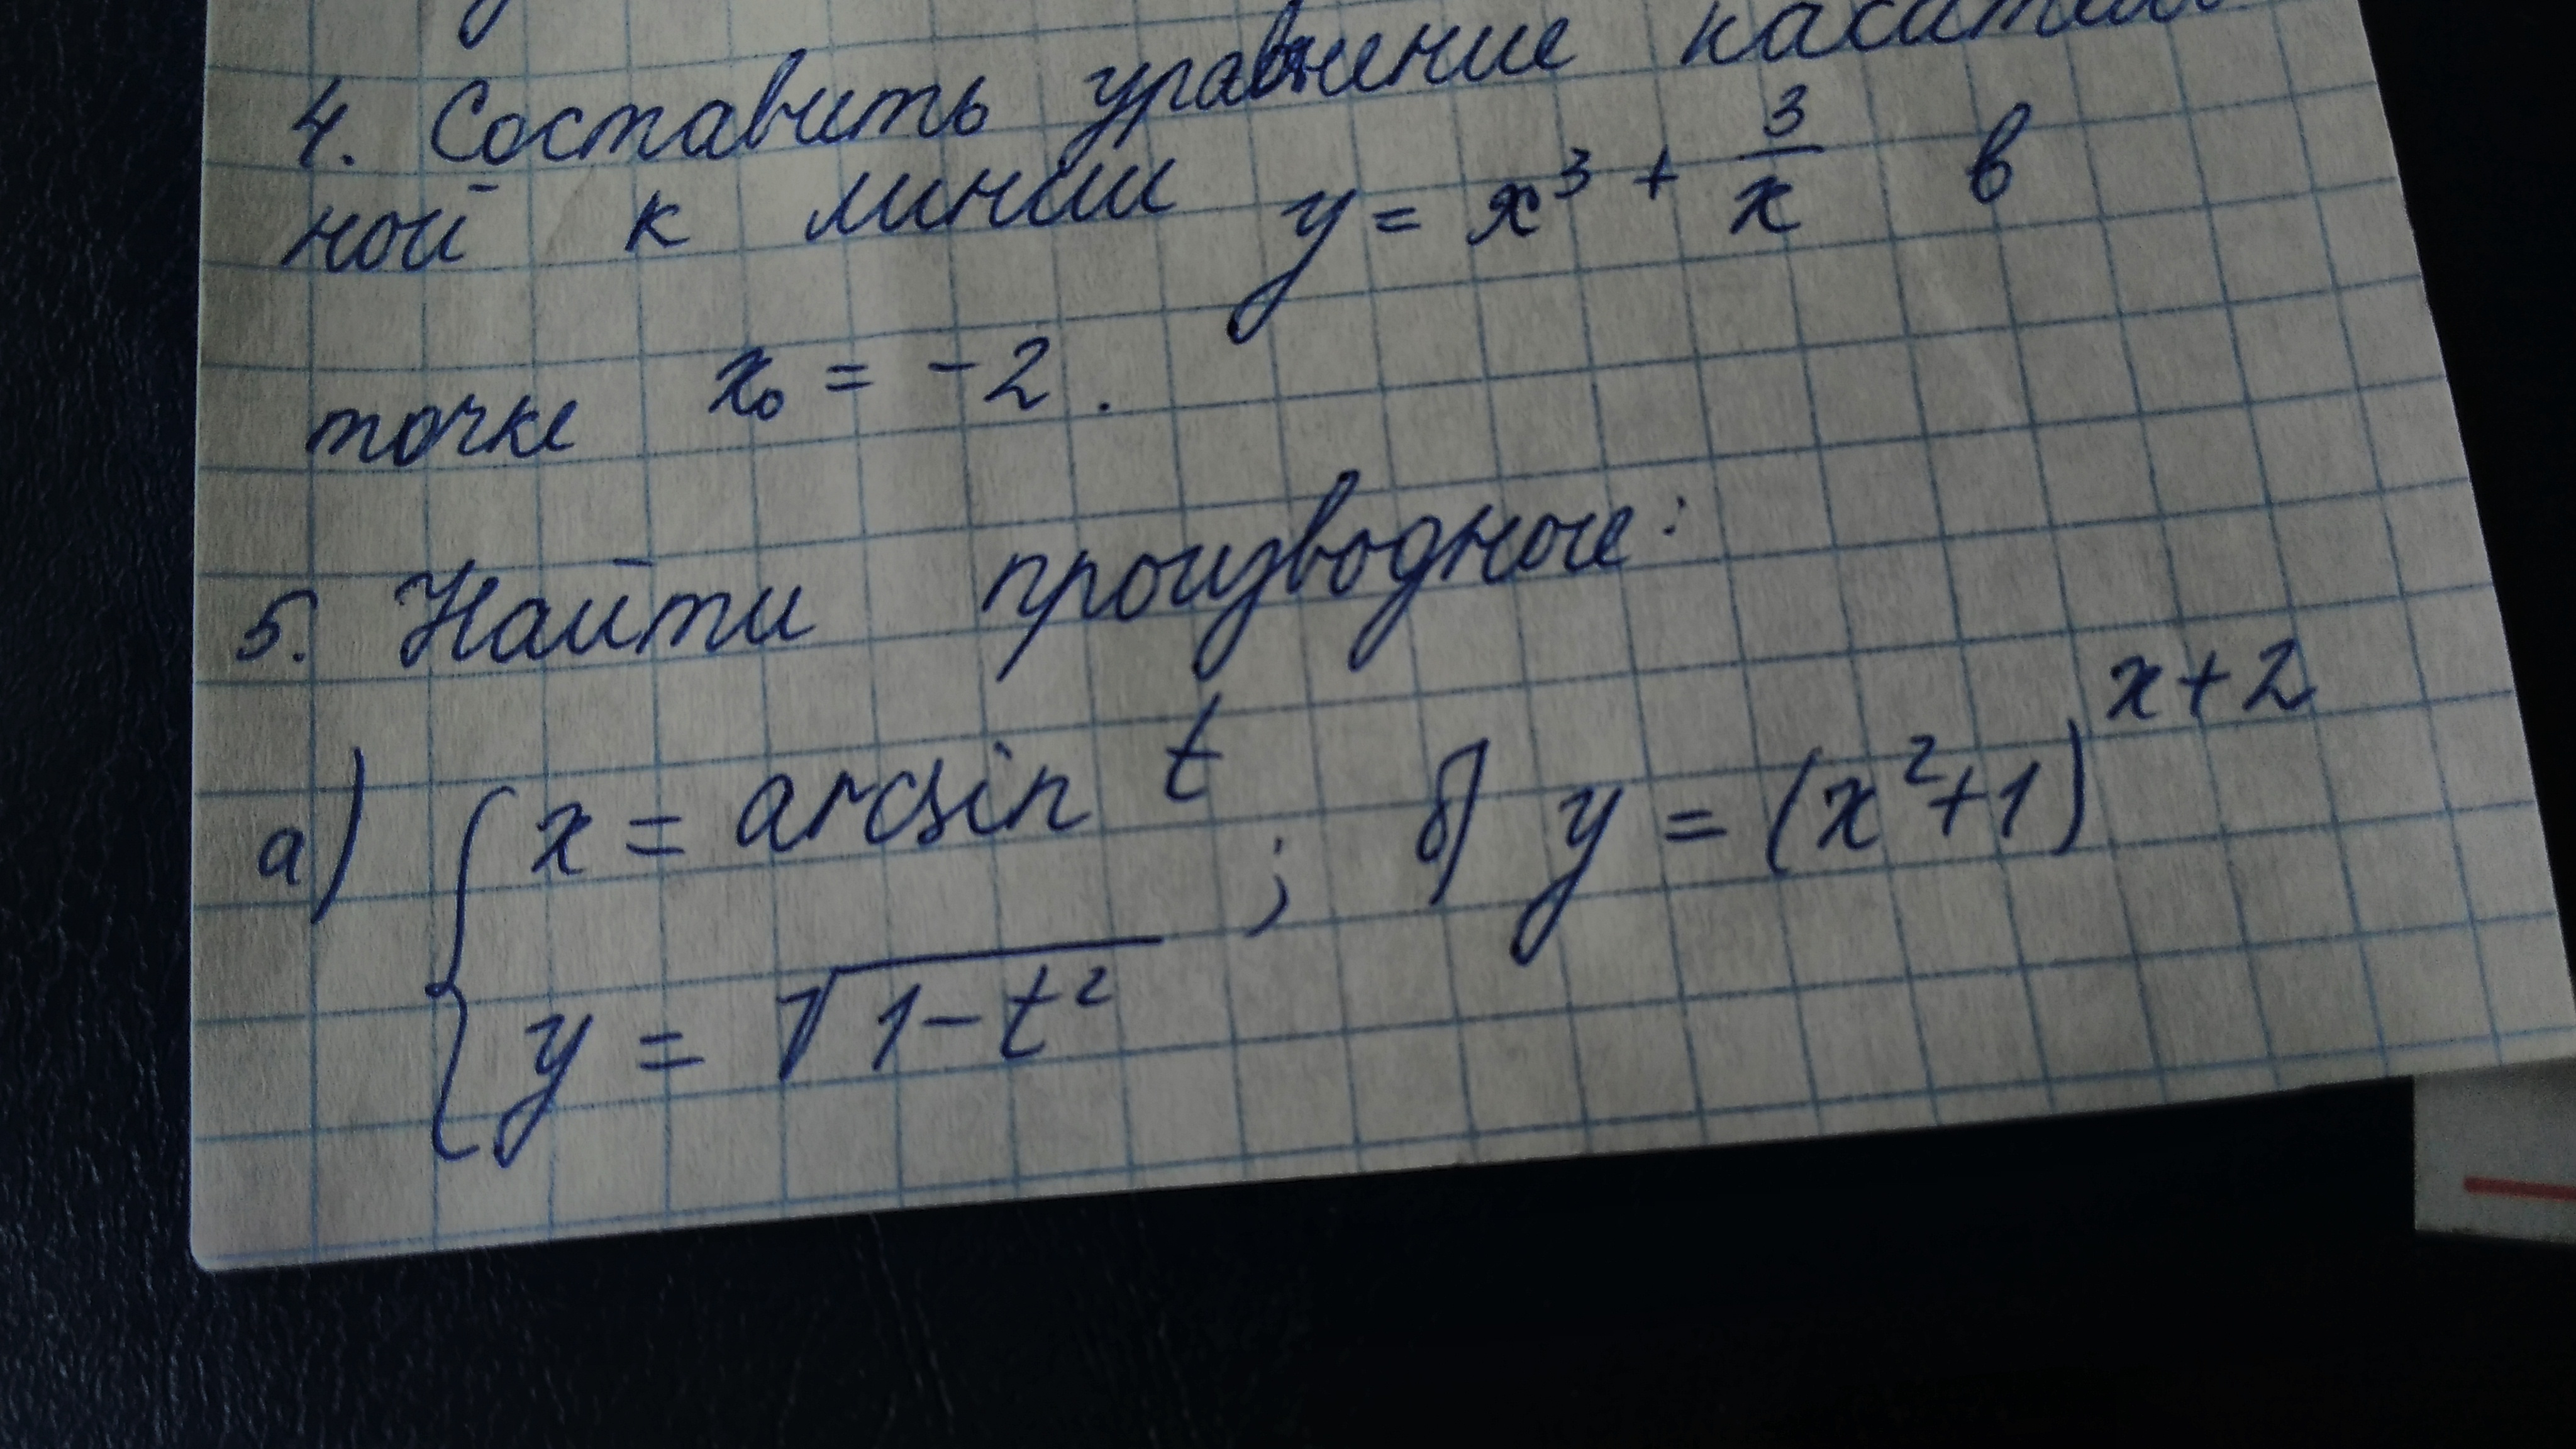 4. Составить уравнение касатель
ной к линии y = x³ + 3/x в
точке x₀ = -2.
5. Найти производные:
а) { x = arcsin t ; б) y = (x²+1)^(x+2)
y = √(1-t²)